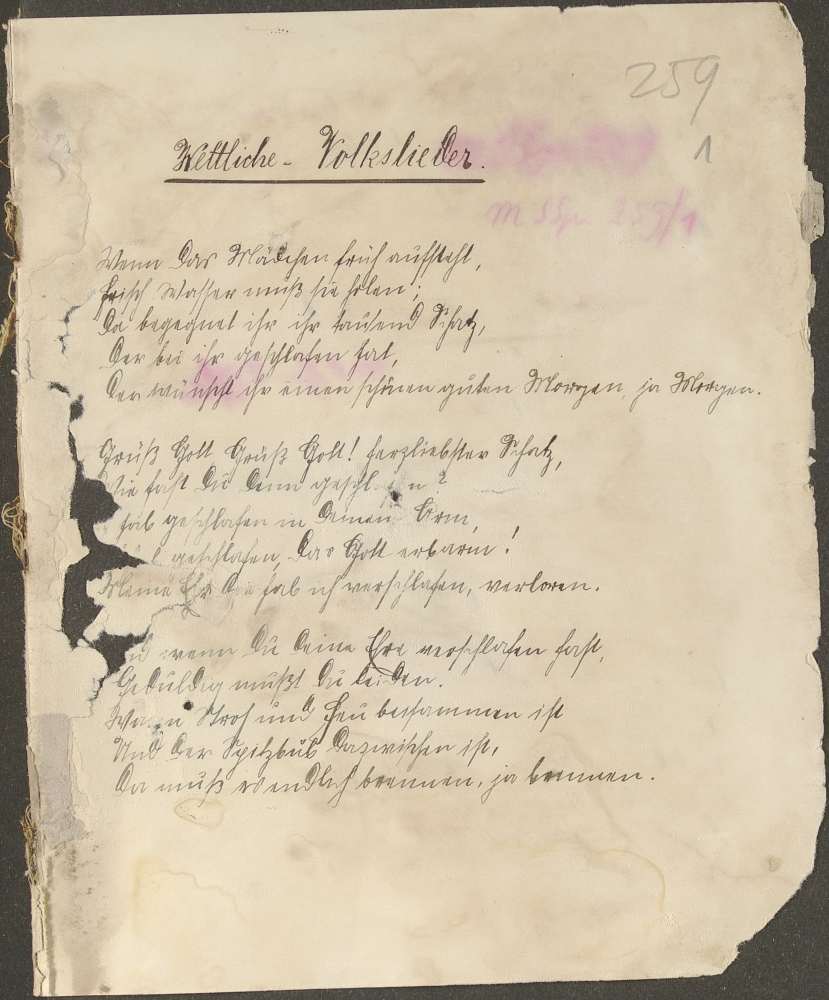 259
1
Weltliche - Volkslieder.
M 259/1
Wenn das Mädchen früh aufsteht,
frisch Wasser muß sie holen;
Da begegnet ihr ihr tausend Schatz,
Der bei ihr geschlafen hat,
Der wünscht ihr einen schönen guten Morgen, ja Morgen.
Grüß Gott Grüß Gott! herzliebster Schatz,
Wie hast Du denn geschl n ?
hab geschlafen in Deinem Arm,
geschlafen, das Gott erbarm!
Meine Ehr die hab ich verschlafen, verloren.
wenn Du deine Ehre verschlafen hast,
Geduldig mußt Du leiden.
Wenn Stroh und Heu beisammen ist
Und der Spitzbub dazwischen ist,
Da muß es endlich brennen, ja brennen.